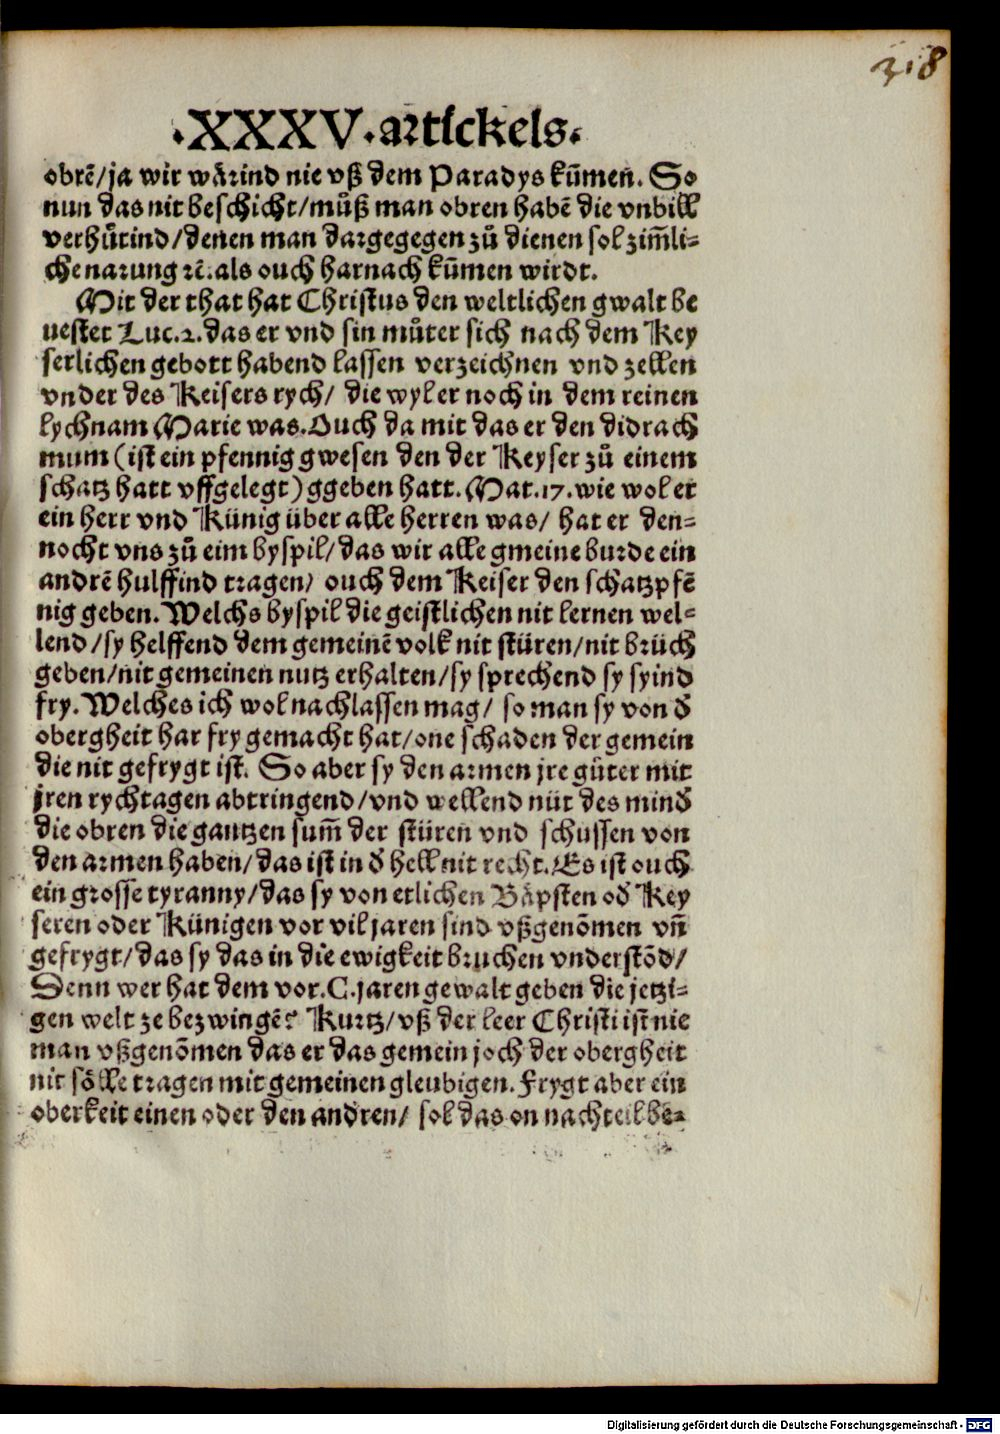 318
.XXXV.artickels.
obrē/ja wir wårind nie vß dem Paradys kūmen. So
nun das nit beschicht/můß man obren habē die vnbill
verhůtind/denen man dargegegen zů dienen sol zim̄li-
che narung ꝛc̄. als ouch harnach kūmen wirdt.
Mit der that hat Christus den weltlichen gwalt be
uestet Luc.2.das er vnd sin můter sich nach dem Key
serlichen gebott habend lassen verzeichnen vnd zellen
vnder des Keisers rych/ die wyl er noch in dem reinen
lychnam Marie was. Ouch da mit das er den didrach
mum (ist ein pfennig gwesen den der Keyser zů einem
schatz hatt vffgelegt) ggeben hatt. Mat.17. wie wol er
ein herr vnd Künig über alle herren was/ hat er den-
nocht vns zů eim byspil/das wir alle gmeine burde ein
andrē hulffind tragen/ ouch dem Keiser den schatzpfē
nig geben. Welchs byspil die geistlichen nit lernen wel-
lend/sy helffend dem gemeinē volk nit stüren/nit brüch
geben/nit gemeinen nutz erhalten/sy sprechend sy syind
fry. Welches ich wol nachlassen mag/ so man sy von đ
obergheit har fry gemacht hat/one schaden der gemein
die nit gefrygt ist. So aber sy den armen jre gůter mit
jren rychtagen abtringend/vnd wellend nüt des minđ
die obren die gantzen sum̄ der stüren vnd schussen von
den armen haben/das ist in đ hell nit recht. Es ist ouch
ein grosse tyranny/das sy von etlichen Båpsten ođ Key
seren oder Künigen vor vil jaren sind vßgenōmen vn̄
gefrygt/das sy das in die ewigkeit bruchen vnderstōd/
Denn wer hat dem vor.C.jaren gewalt geben die jetzi-
gen welt ze bezwingē? Kurtz/vß der leer Christi ist nie
man vßgenōmen das er das gemein joch der obergheit
nit sölle tragen mit gemeinen gleubigen. Frygt aber ein
oberkeit einen oder den andren/ sol das on nachteil be-
Digitalisierung gefördert durch die Deutsche Forschungsgemeinschaft - DFG